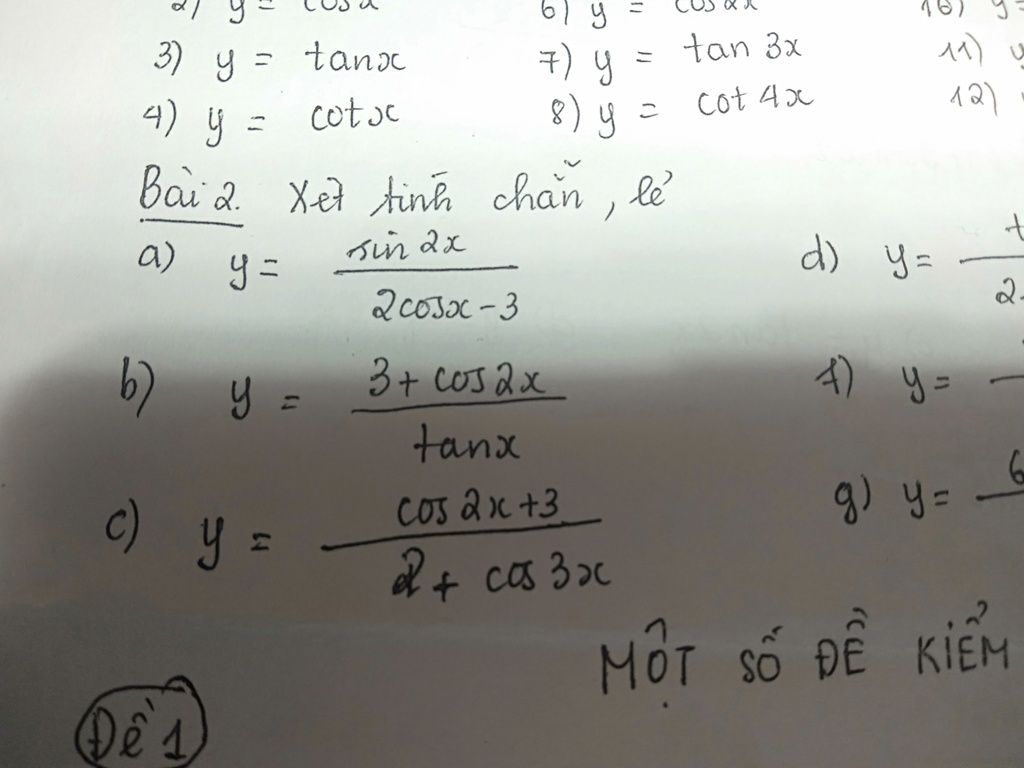 2) y = cosx 6) y = cos2x 10) y=
3) y = tanx 7) y = tan 3x 11) y
4) y = cotx 8) y = cot 4x 12)
Bài 2. Xét tính chẵn, lẻ
a) y = sin 2x / 2cosx - 3 d) y =
b) y = 3 + cos2x / tanx f) y =
c) y = cos 2x + 3 / 2 + cos 3x g) y = 6
MỘT SỐ ĐỀ KIỂM
Đề 1